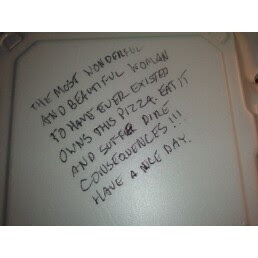 THE MOST WONDERFUL
AND BEAUTIFUL WOMAN
TO HAVE EVER EXISTED
OWNS THIS PIZZA EAT IT
AND SUFFER DIRE
CONSEQUENCES!!!
HAVE A NICE DAY.